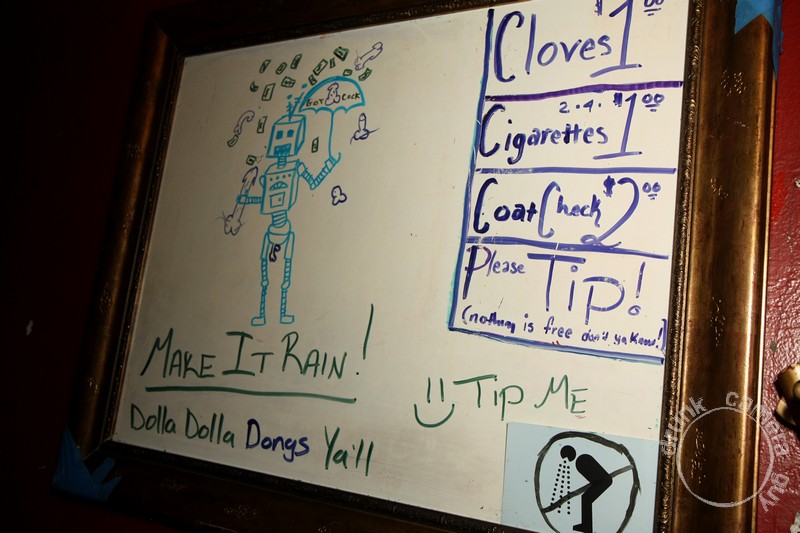 Cloves $1.00
2.4.
Cigarettes $1.00
Coat Check $2.00
Please Tip!
(nothing is free don't ya know!)
GOT COCK
MAKE IT RAIN!
Dolla Dolla Dongs Ya'll
TIP ME
drunk camera guy